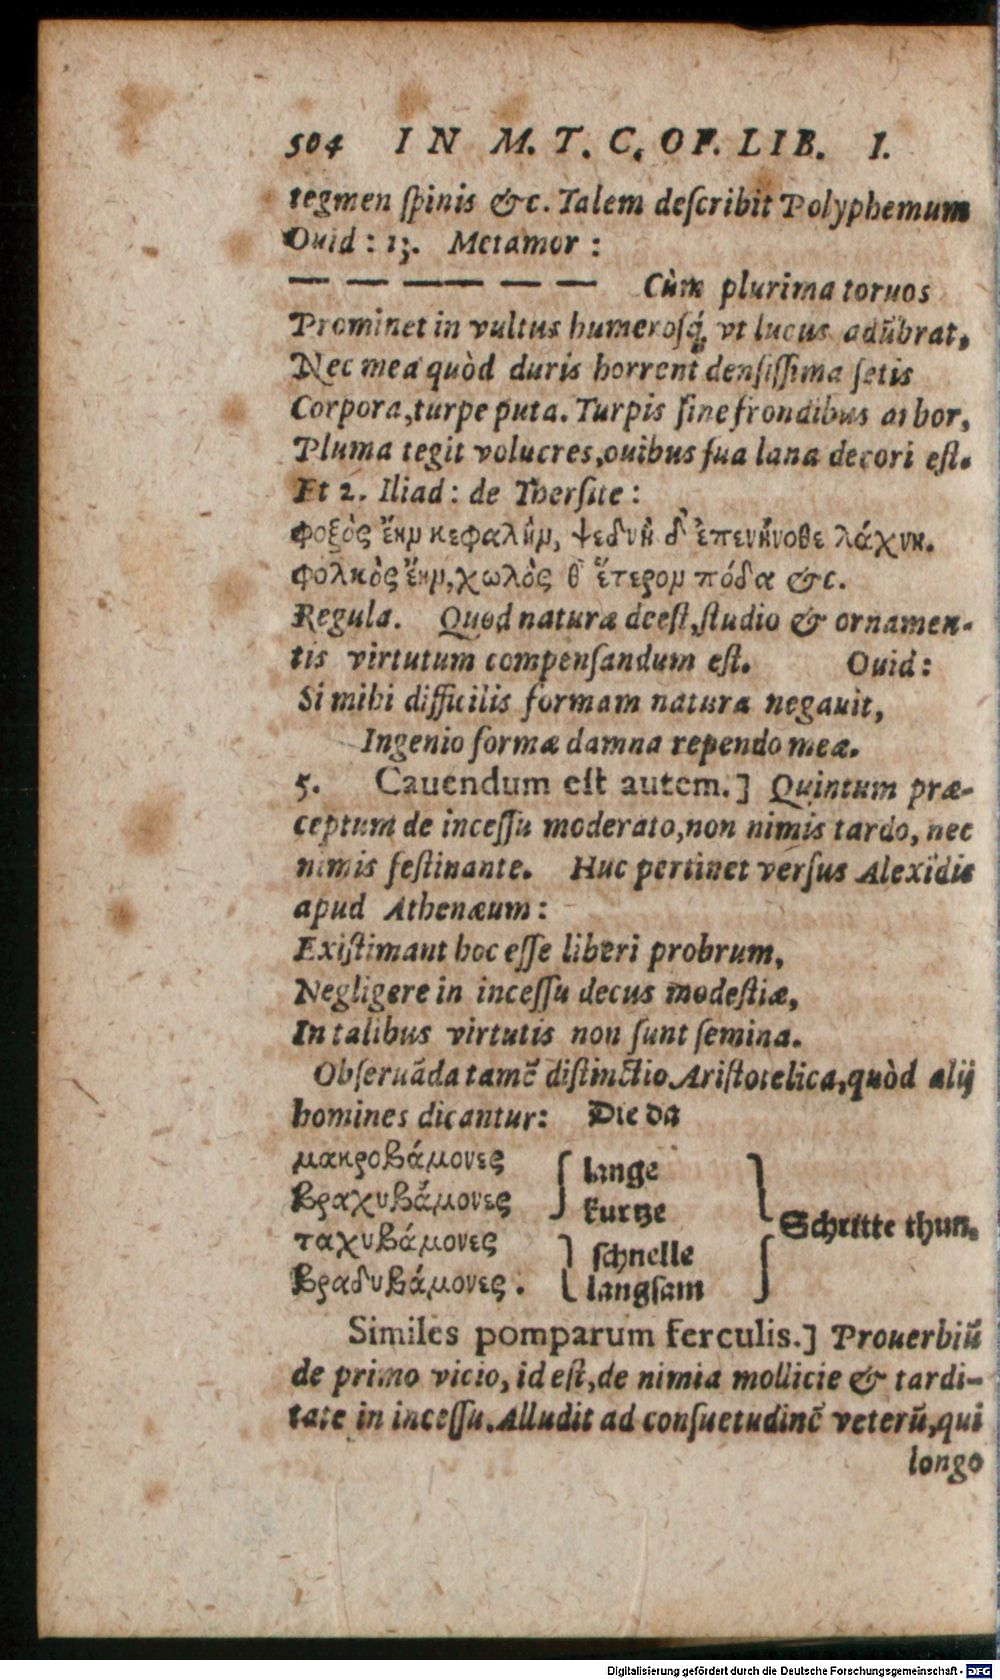 504 IN M. T. C. OF. LIB. I.
tegmen ſpinis &c. Talem deſcribit Polyphemum
Ouid: 13. Metamor:
— — — — — Cùm plurima toruos
Prominet in vultus humerosq́, vt lucus adũbrat,
Nec mea quòd duris horrent denſiſſima ſetis
Corpora, turpe puta. Turpis ſine frondibus arbor,
Pluma tegit volucres, ouibus ſua lana decori eſt.
Et 2. Iliad: de Therſite:
φοξὸς ἔην κεφαλὴν, ψεδνὴ δ' ἐπενήνοθε λάχνη.
φολκὸς ἔην, χωλὸς θ' ἕτερον πόδα &c.
Regula. Quod naturæ deeſt, ſtudio & ornamen-
tis virtutum compenſandum eſt. Ouid:
Si mihi difficilis formam natura negauit,
Ingenio formæ damna rependo meæ.
5. Cauendum eſt autem.] Quintum præ-
ceptum de inceſſu moderato, non nimis tardo, nec
nimis feſtinante. Huc pertinet verſus Alexidis
apud Athenæum:
Exiſtimant hoc eſſe liberi probrum,
Negligere in inceſſu decus modeſtiæ,
In talibus virtutis non ſunt ſemina.
Obſeruãda tamẽ diſtinctio Ariſtotelica, quòd alij
homines dicantur: Die da
μακροβάμονες { lange }
βραχυβάμονες kurtze
Schritte thun.
ταχυβάμονες schnelle
βραδυβάμονες. langsam
Similes pomparum ferculis.] Prouerbiũ
de primo vicio, id eſt, de nimia mollicie & tardi-
tate in inceſſu. Alludit ad conſuetudinẽ veterũ, qui
longo
Digitalisierung gefördert durch die Deutsche Forschungsgemeinschaft - DFG